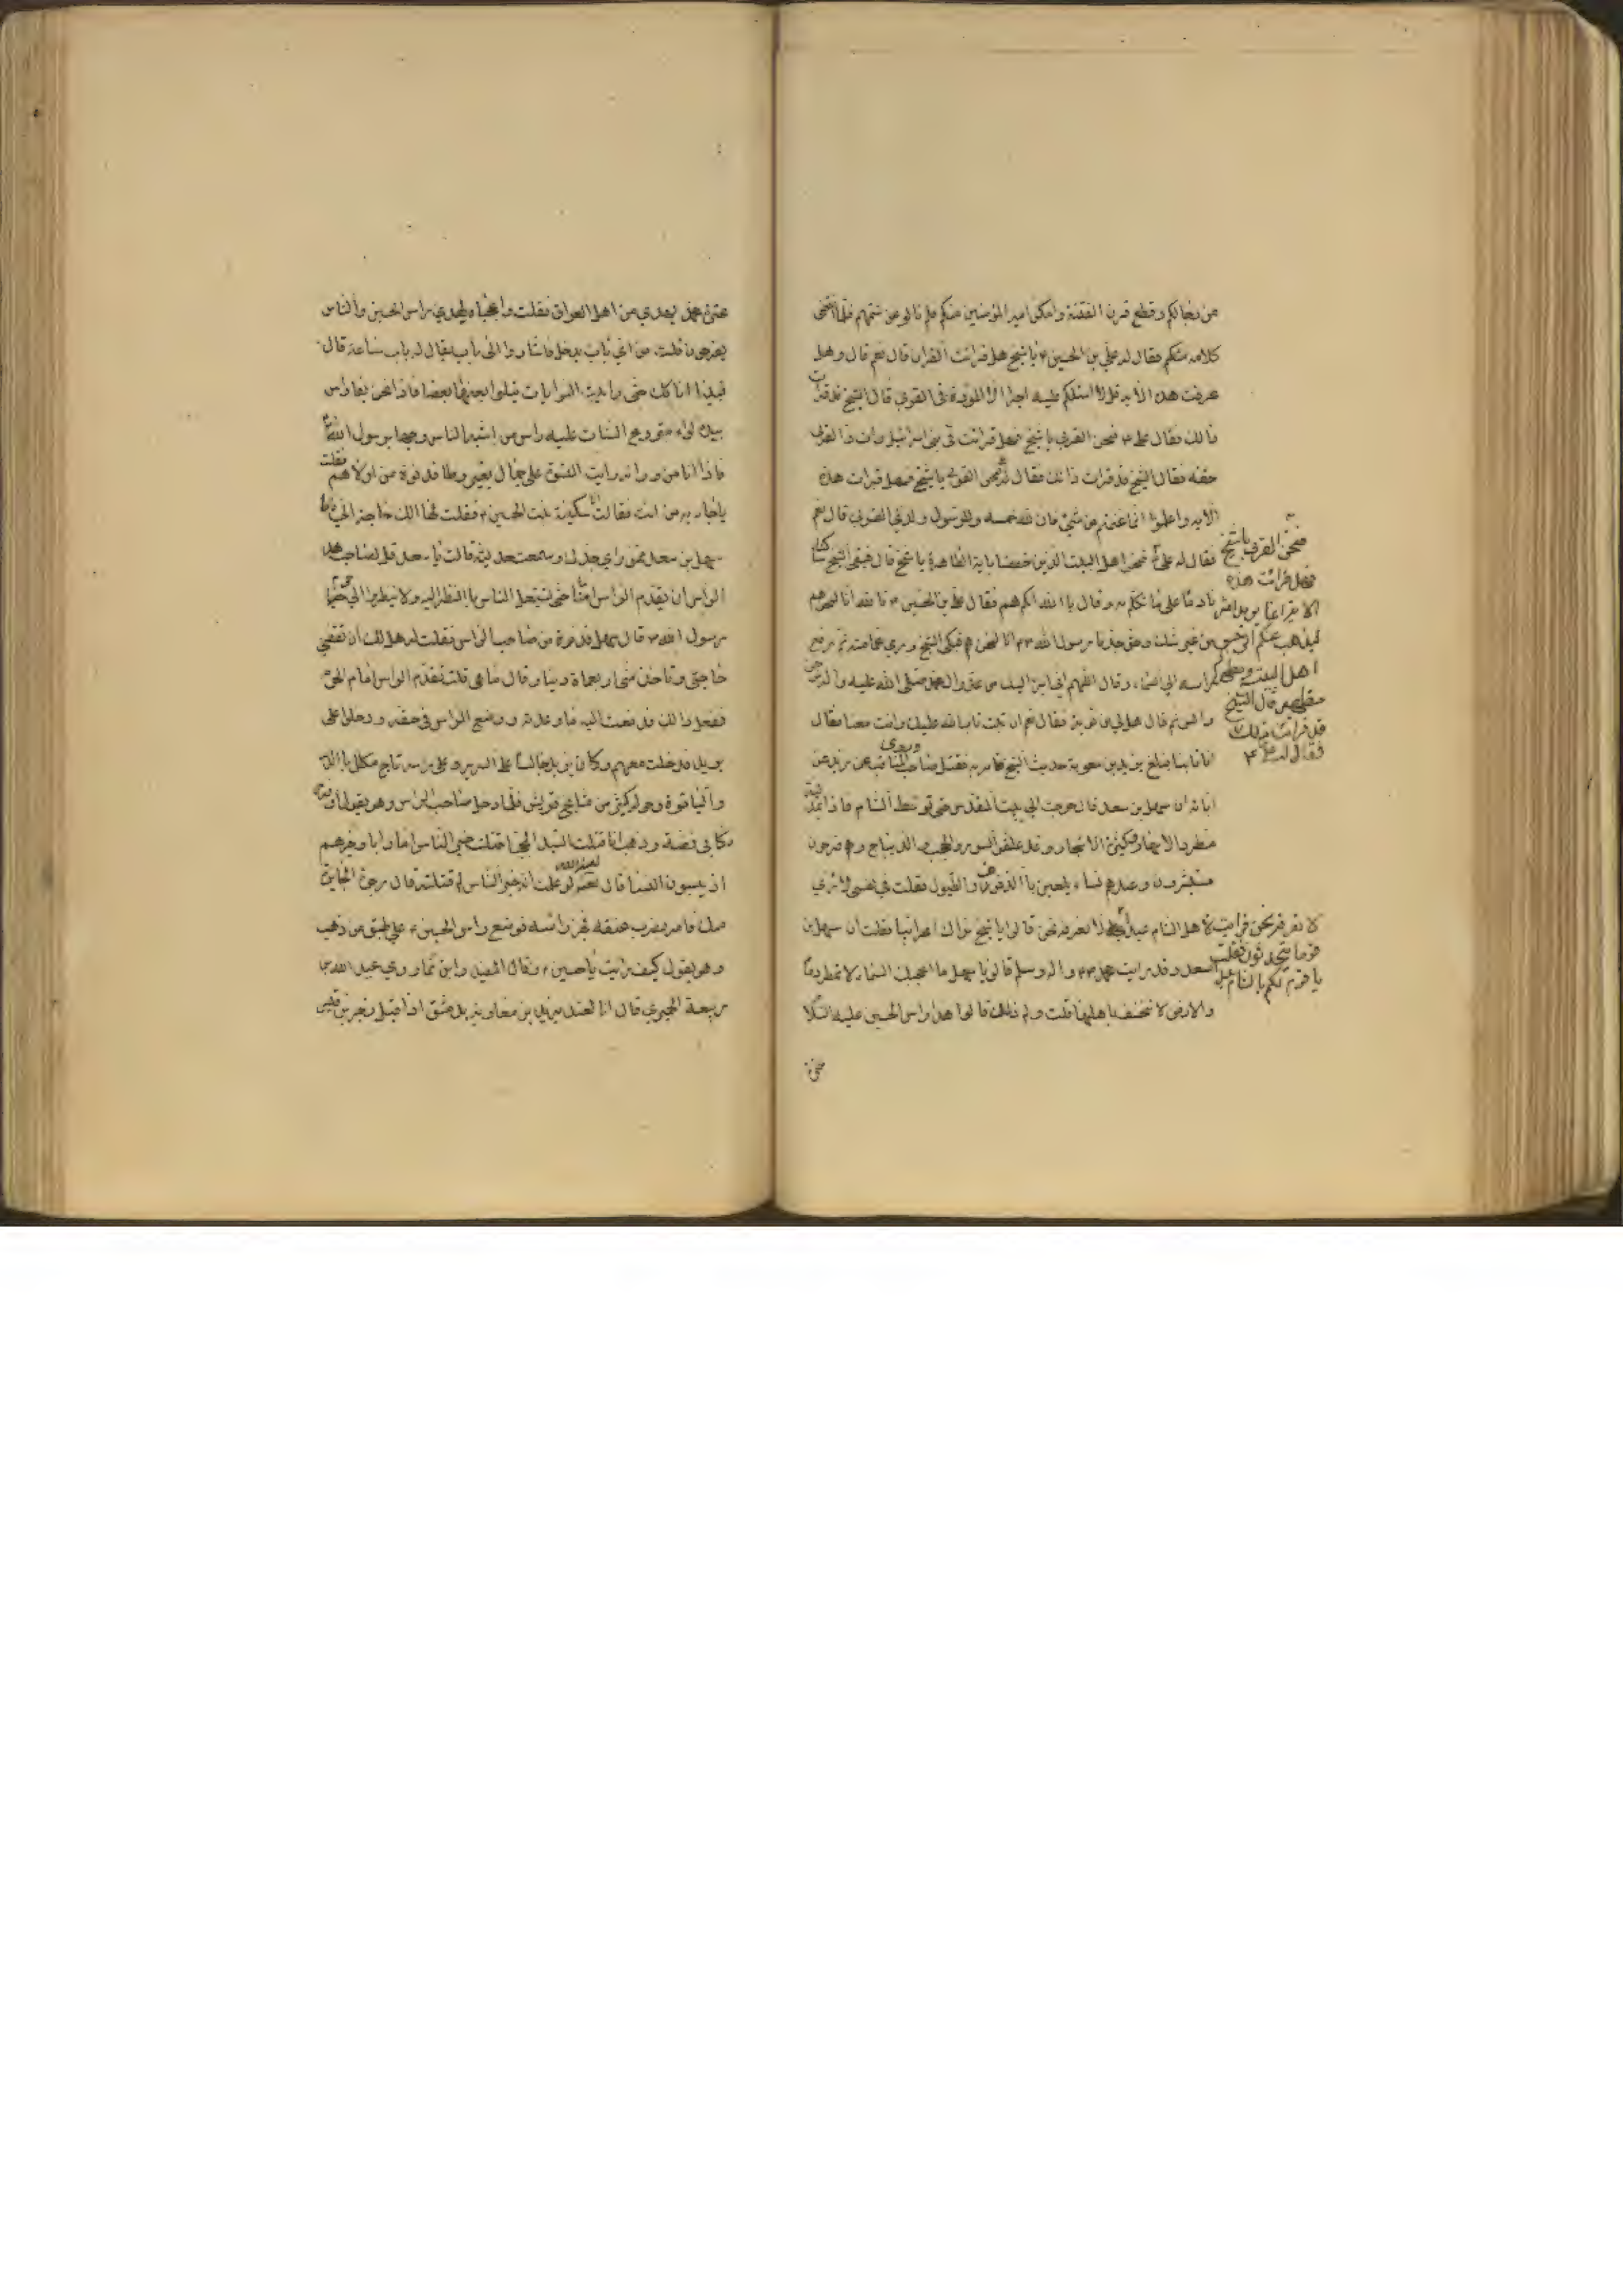 من رجالكم وقطع قرن الفتنة وامكن امير المؤمنين منكم فلم نالو عن شتمهم فلما انقضى
كلامه منكم فقال له علي بن الحسين ع يا شيخ هل قرات القران قال نعم قال وهل
عرفت هذه الاية قل لا اسئلكم عليه اجرا الا المودة في القربى قال الشيخ قد قرات
ذالك فقال علي ع فنحن القربى يا شيخ فهل قرات في بني اسرائيل وات ذا القربى
حقه فقال الشيخ قد قرات ذالك فقال نحن القربى يا شيخ فهل قرات هذه
الاية واعلموا انما غنمتم من شيئ فان لله خمسه وللرسول ولذي القربى قال نعم
فنحن القربى يا شيخ
فهل قرات هذه
الاية انما يريد الله
ليذهب عنكم الرجس
اهل البيت ويطهركم
تطهيرا قال الشيخ
قد قرات ذلك
فقال له علي ع
فقال له علي ع نحن اهل البيت الذين خصنا باية الطاهرة يا شيخ قال فبقي الشيخ ساكتا
نادما على ما تكلم به وقال باالله انكم هم فقال علي بن الحسين ع تاالله انا لنحن هم
من غير شك وحق جدنا رسول الله ص انا لنحن هم فبكى الشيخ ورمى عمامته ثم رفع
راسه الى السماء وقال اللهم اني ابرئ اليك من عدو ال محمد صلى الله عليه واله من جن
والانس ثم قال هل لي من توبة فقال نعم ان تبت تاب الله عليك وانت معنا فقال
انا تائب فبلغ يزيد بن معوية حديث الشيخ فامر به فقتل وروى صاحب المناقب عن زيد عن
ابائه ان سهل بن سعد قال خرجت الى بيت المقدس حتى توسطت الشام فاذا انا بمدينة
مطردة الانهار وكثيرة الاشجار وقد علقوا الستور والحجب والديباج وهم فرحون
مستبشرون وعندهم نساء يلعبن باالدفوف والطبول فقلت في نفسي لا نرى
لاهل الشام عيدا لا نعرفه نحن قالوا يا شيخ نراك اعرابيا فقلت انا سهل بن
قوما يتحدثون فقلت
يا قوم لكم بالشام عيد
سعد وقد رايت محمد ص واله وسلم قالوا يا سهل ما اعجبك السماء لا تمطر دما
والارض لا تنخسف باهلها قلت ولم ذلك قالوا هذا راس الحسين عليه السلا
عترة محمد يهدى من اهل العراق فقلت واعجباه يهدى راس الحسين والناس
يفرحون قلت من اي باب يدخل فاشاروا الى باب يقال له باب ساعة قال
فبينا انا كك حتى رايت الرايات يتلوا بعضها بعضا فاذا نحن بفارس
بيده لواء منزوع السنان عليه راس من اشبه الناس وجها برسول الله
فاذا انا من ورائه رايت النسوة على جمال بغير وطا فدنوت من اولاهم فقلت
يا جارية من انت فقالت انا سكينة بنت الحسين ع فقلت لها الك حاجة الي فانا
سهل بن سعد ممن راى جدك وسمعت حديثه قالت يا سعد قل لصاحب هذا
الراس ان يقدم الراس امامنا حتى يشتغل الناس باالنظر اليه ولا ينظروا الى حرم
رسول الله ص قال سهل فدنوت من صاحب الراس فقلت له هل لك ان تقضي
حاجتي وتاخذ مني اربعماة دينار قال ما هي قلت تقدم الراس امام الحرم
ففعل ذالك فدفعت اليه ما وعدته ووضع الراس في حقه ودخلوا على
يزيد فدخلت معهم وكان يزيد جالسا على السرير وعلى راسه تاج مكلل باالدر
والياقوة وحوله كثير من مشايخ قريش فلما دخل صاحب الراس وهو يقول اوقر
ركابي فضة وذهبا انا قتلت السيد المحجبا قتلت خير الناس اما وابا وخيرهم
اذ ينسبون النسبا قال لو علمت انه خير الناس لم قتلته قال رجوت الجايزة
منك فامر بضرب عنقه فجز راسه فوضع راس الحسين ع على طبق من ذهب
وهو يقول كيف رايت يا حسين ع وقال المفيد وابن نما روي عبد الله بن
ربيعة الحميري قال انا لعند يزيد بن معاوية بدمشق اذا اقبل زجر بن قيس